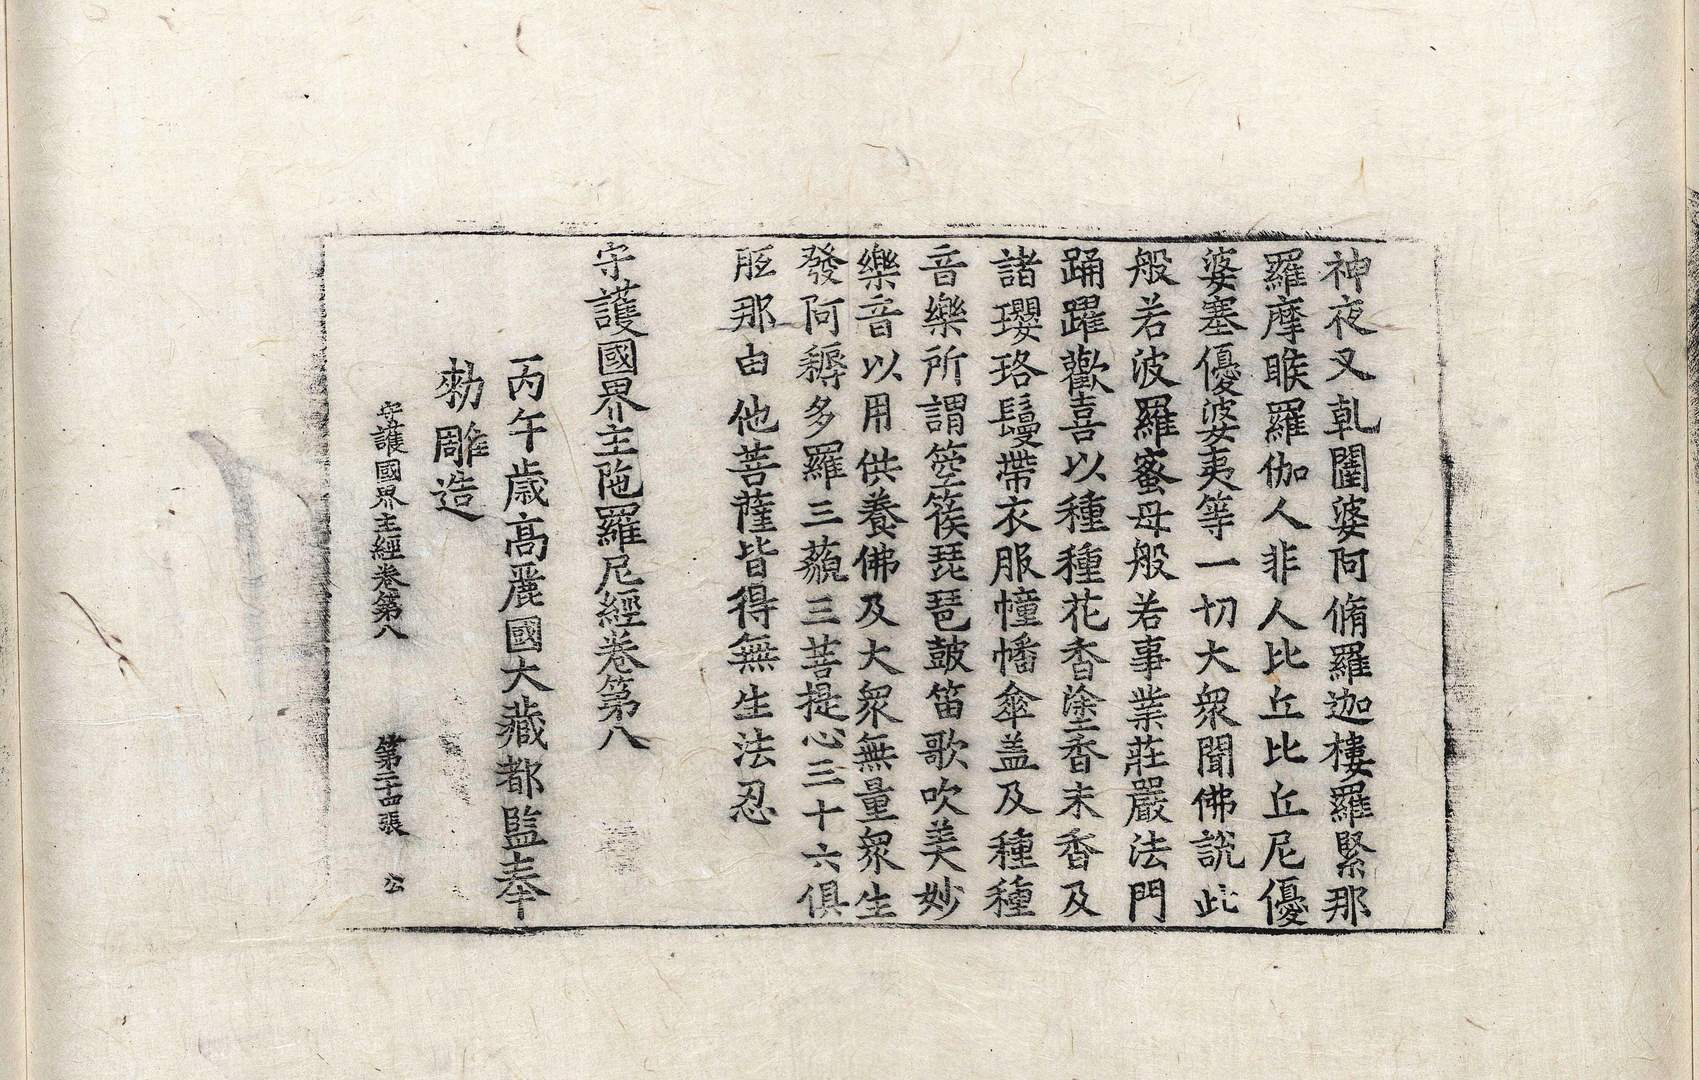 神夜叉乹闥婆阿脩羅迦樓羅緊那
羅摩睺羅伽人非人比丘比丘尼優
婆塞優婆夷等一切大衆聞佛說此
般若波羅蜜母般若事業莊嚴法門
踊躍歡喜以種種花香塗香末香及
諸瓔珞鬘帶衣服幢幡傘盖及種種
音樂所謂箜篌琵琶鼓笛歌吹美妙
樂音以用供養佛及大衆無量衆生
發阿耨多羅三藐三菩提心三十六俱
胝那由他菩薩皆得無生法忍
守護國界主陁羅尼經卷第八
丙午歲高麗國大藏都監奉
勑雕造
守護國界主經卷第八 第二十四張 公